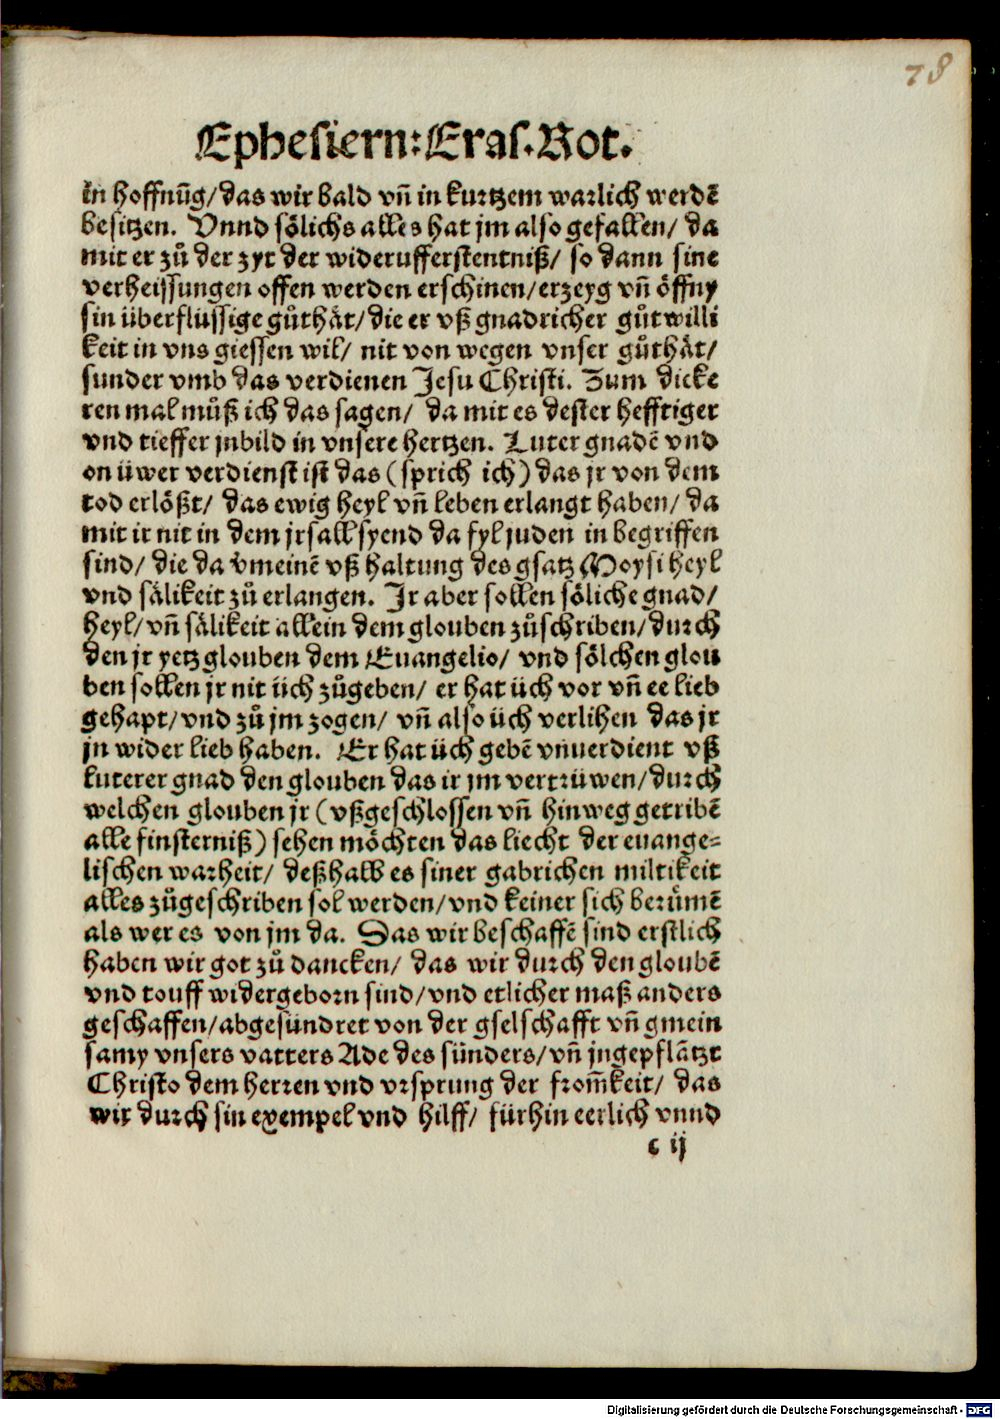 78
Ephesiern: Eras. Rot.
in hoffnūg/ das wir bald vn̄ in kurtzem warlich werdē
besitzen. Vnnd sőlichs alles hat jm also gefallen/ da
mit er zů der zyt der widerufferstentniß/ so dann sine
verheissungen offen werden erschinen/ erzeyg vn̄ öffny
sin überflüssige gůthåt/ die er vß gnadricher gůtwilli
keit in vns giessen wil/ nit von wegen vnser gůthåt/
sunder vmb das verdienen Jesu Christi. Zum dicke
ren mal můß ich das sagen/ da mit es dester hefftiger
vnd tieffer jnbild in vnsere hertzen. Luter gnadē vnd
on üwer verdienst ist das (sprich ich) das jr von dem
tod erlößt/ das ewig heyl vn̄ leben erlangt haben/ da
mit ir nit in dem jrsall syend da fyl juden in begriffen
sind/ die da v̄meinē vß haltung des gsatz Moysi heyl
vnd sålikeit zů erlangen. Ir aber sollen sőliche gnad/
heyl/ vn̄ sålikeit allein dem glouben zůschriben/ durch
den jr yetz glouben dem Euangelio/ vnd sőlchen glou
ben sollen jr nit üch zůgeben/ er hat üch vor vn̄ ee lieb
gehapt/ vnd zů jm zogen/ vn̄ also üch verlihen das jr
jn wider lieb haben. Er hat üch gebē vnuerdient vß
luterer gnad den glouben das ir jm vertrüwen/ durch
welchen glouben jr (vßgeschlossen vn̄ hinweg getribē
alle finsterniß) sehen möchten das liecht der euange⸗
lischen warheit/ deßhalb es siner gabrichen miltikeit
alles zůgeschriben sol werden/ vnd keiner sich berümē
als wer es von jm da. Das wir beschaffē sind erstlich
haben wir got zů dancken/ das wir durch den gloubē
vnd touff widergeborn sind/ vnd etlicher maß anders
geschaffen/ abgesündret von der gselschafft vn̄ gmein
samy vnsers vatters Ade des sünders/ vn̄ jngepflātzt
Christo dem herren vnd vrsprung der from̄keit/ das
wir durch sin exempel vnd hilff/ fürhin eerlich vnnd
c ij
Digitalisierung gefördert durch die Deutsche Forschungsgemeinschaft - DFG